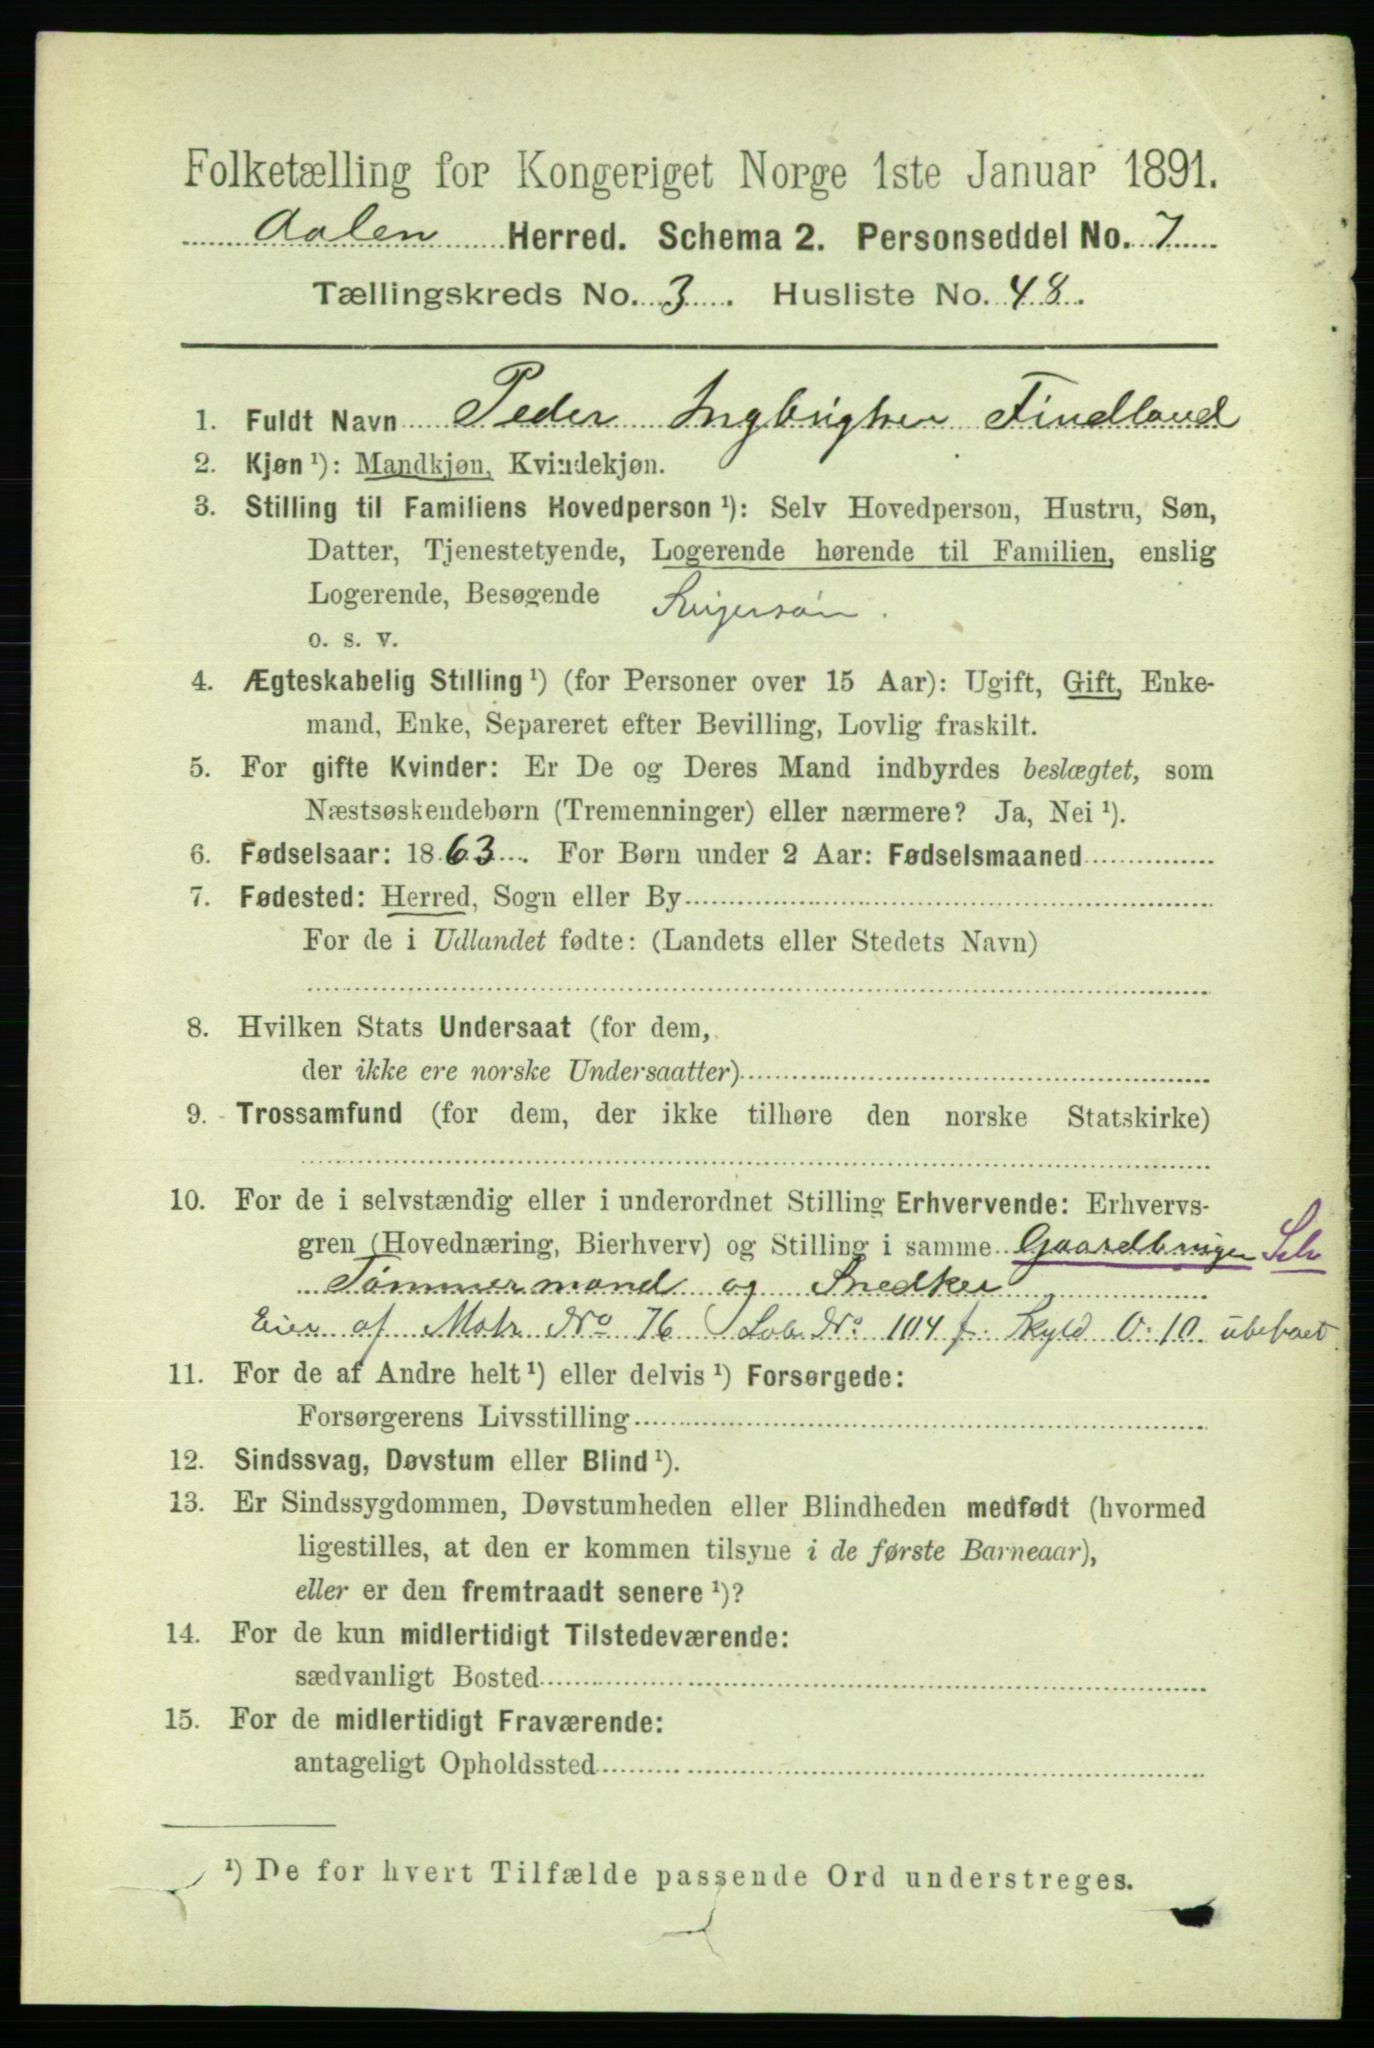 Folketælling for Kongeriget Norge 1ste Januar 1891.
Aalen Herred. Schema 2. Personseddel No. 7
Tællingskreds No. 3. Husliste No. 48.
1. Fuldt Navn Peder Ingbrigtsen Findland
2. Kjøn ¹): Mandkjøn, Kvindekjøn.
3. Stilling til Familiens Hovedperson ¹): Selv Hovedperson, Hustru, Søn,
Datter, Tjenestetyende, Logerende hørende til Familien, enslig
Logerende, Besøgende Svigersøn.
o. s. v.
4. Ægteskabelig Stilling ¹) (for Personer over 15 Aar): Ugift, Gift, Enke-
mand, Enke, Separeret efter Bevilling, Lovlig fraskilt.
5. For gifte Kvinder: Er De og Deres Mand indbyrdes beslægtet, som
Næstsøskendebørn (Tremenninger) eller nærmere? Ja, Nei ¹).
6. Fødselsaar: 1863. For Børn under 2 Aar: Fødselsmaaned
7. Fødested: Herred, Sogn eller By
For de i Udlandet fødte: (Landets eller Stedets Navn)
8. Hvilken Stats Undersaat (for dem,
der ikke ere norske Undersaatter)
9. Trossamfund (for dem, der ikke tilhøre den norske Statskirke)
10. For de i selvstændig eller i underordnet Stilling Erhvervende: Erhvervs-
gren (Hovednæring, Bierhverv) og Stilling i samme Gaardbruger Selv
Tømmermand og Snedker
Eier af Matr No 76 Løb. No. 104 f. Skyld 0.10 ubeboet
11. For de af Andre helt ¹) eller delvis ¹) Forsørgede:
Forsørgerens Livsstilling
12. Sindssvag, Døvstum eller Blind ¹).
13. Er Sindssygdommen, Døvstumheden eller Blindheden medfødt (hvormed
ligestilles, at den er kommen tilsyne i de første Barneaar),
eller er den fremtraadt senere ¹)?
14. For de kun midlertidigt Tilstedeværende:
sædvanligt Bosted
15. For de midlertidigt Fraværende:
antageligt Opholdssted
¹) De for hvert Tilfælde passende Ord understreges.